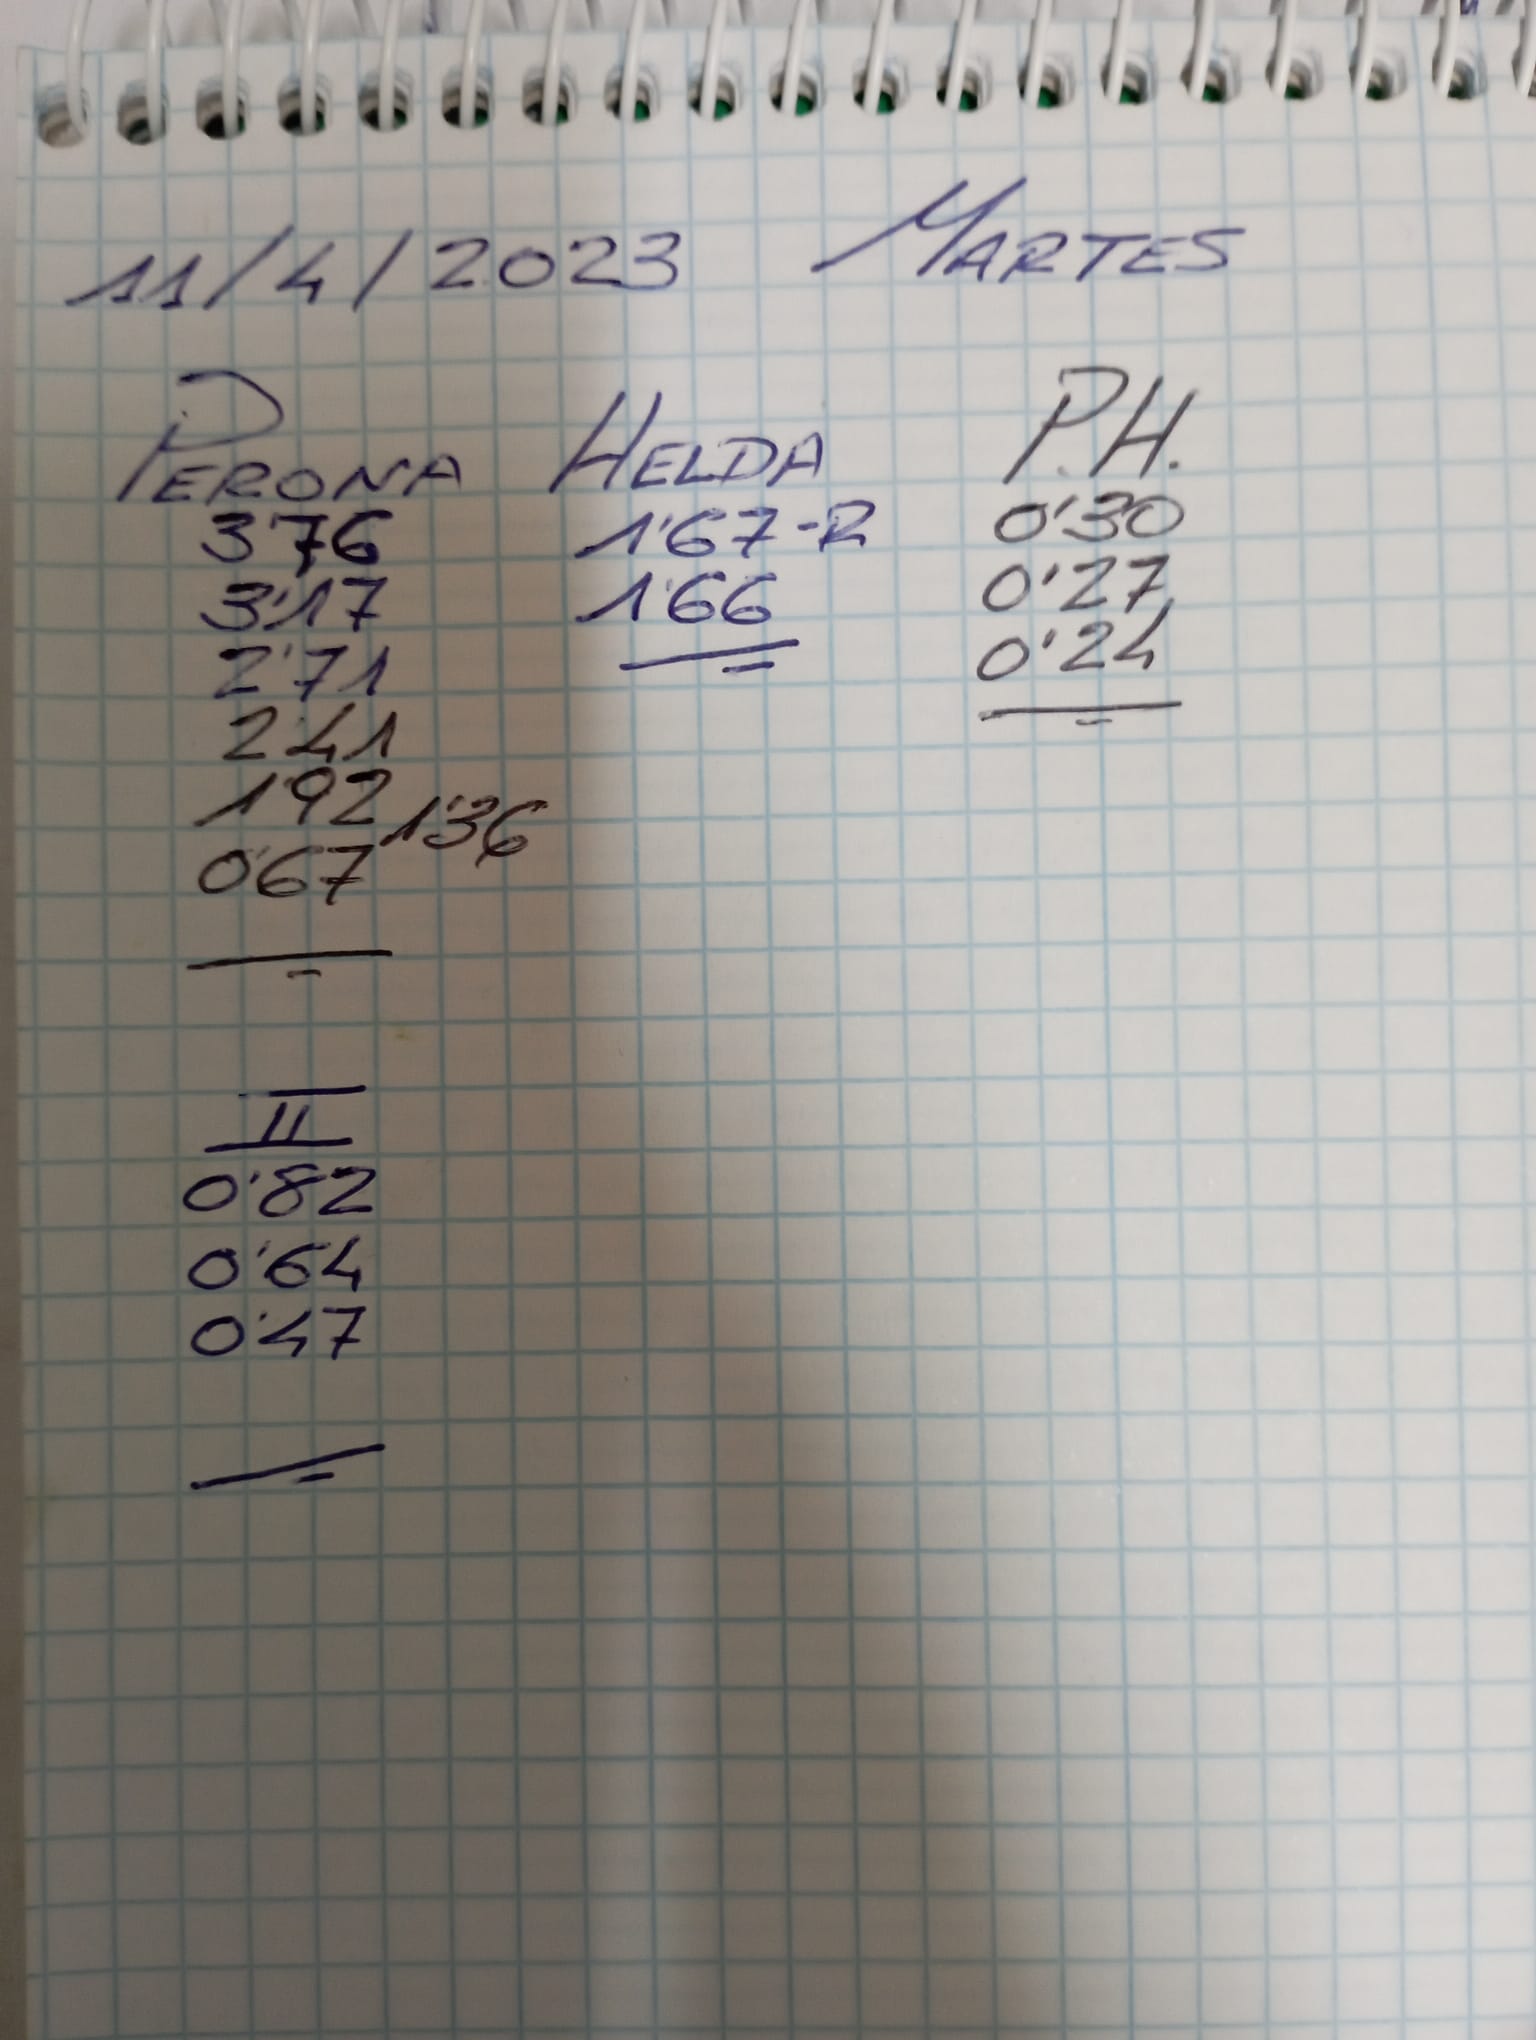 11/4/2023 MARTES
PERONA HELDA P.H.
3'76 1'67-R 0'30
3'17 1'66 0'27
2'71 0'24
2'41
1'92 1'36
0'67
II
0'82
0'64
0'47